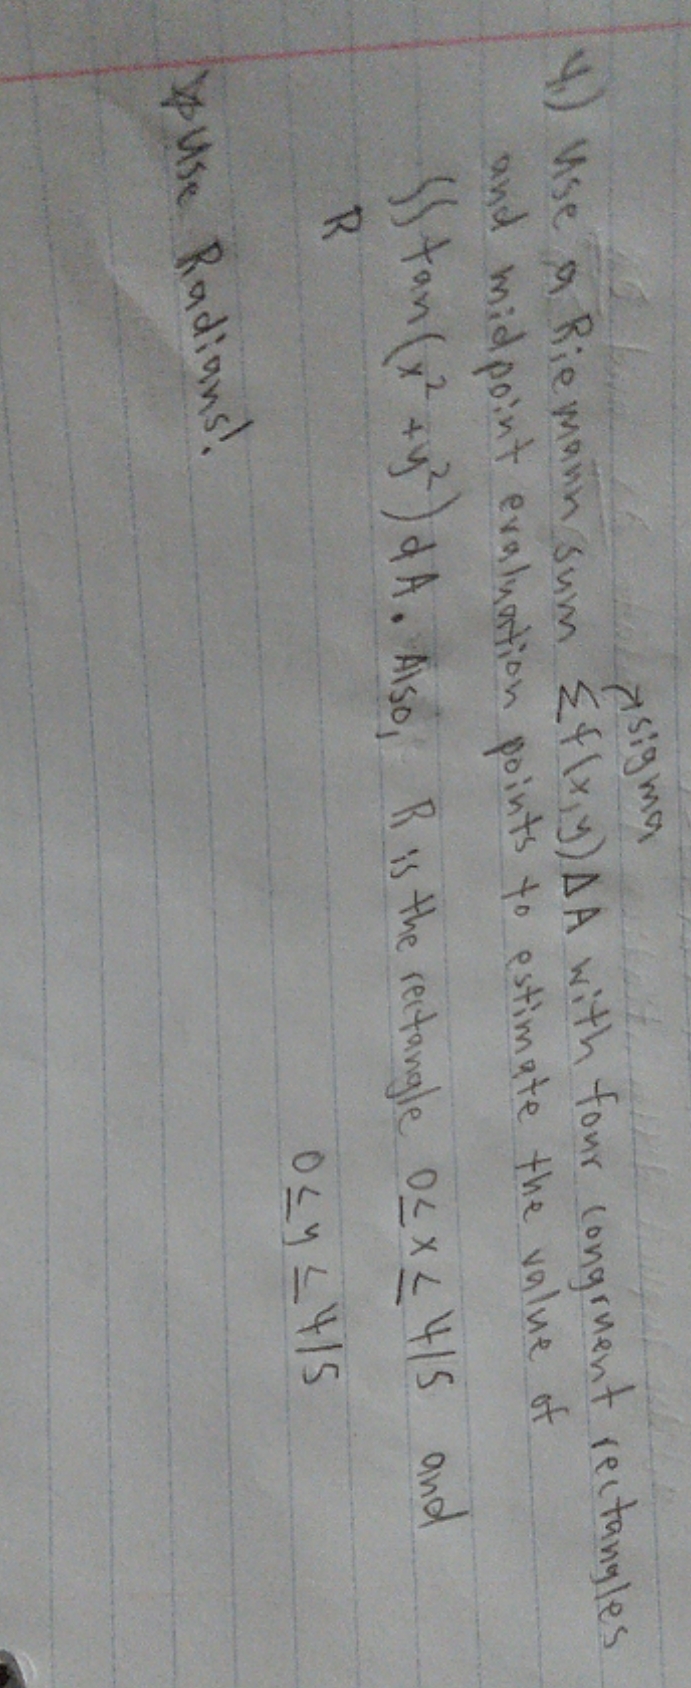 →sigma
4) Use a Riemann sum Σf(x,y)ΔA with four congruent rectangles
and midpoint evaluation points to estimate the value of
∫∫tan(x²+y²)dA. Also, R is the rectangle 0≤x≤4/5 and
R 0≤y≤4/5
☆Use Radians!